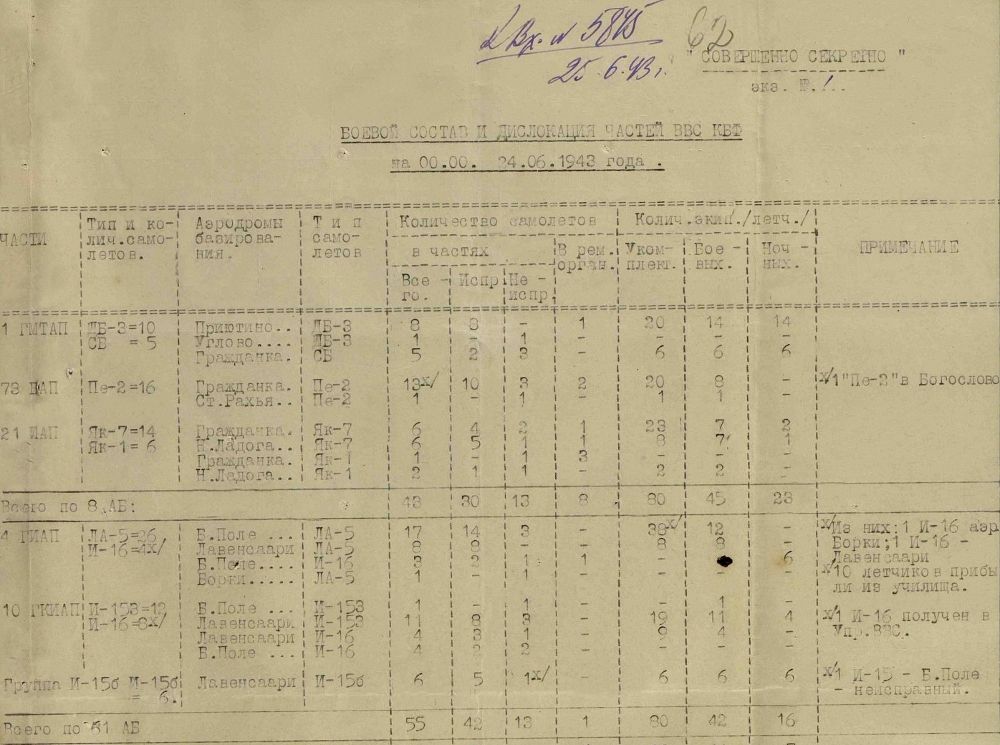 Вх. N 5845
25.6.43г.
62
"СОВЕРШЕННО СЕКРЕТНО"
экз. №.1..
БОЕВОЙ СОСТАВ И ДИСЛОКАЦИЯ ЧАСТЕЙ ВВС КБФ
на 00.00. 24.06.1943 года .
ЧАСТИ Тип и ко- Аэродромы Т и п Количество самолетов Колич.экип./летч./ ПРИМЕЧАНИЕ
лич.само- базирова- само- в частях В рем. Уком- Бое - Ноч -
летов. ния. летов орган. плект. вых. ных.
Все - Испр Не -
го. испр.
1 ГМТАП ДБ-3=10 Приютино.. ДБ-3 8 8 - 1 20 14 14
СБ = 5 Углово.... ДБ-3 1 - 1 - - - -
Гражданка. СБ 5 2 3 - 6 6 6
73 ПАП Пе-2=16 Гражданка. Пе-2 13х/ 10 3 2 20 8 - х/1 "Пе-2" в Богослово
Ст.Рахья.. Пе-2 1 - 1 - 1 1 -
21 ИАП Як-7=14 Гражданка. Як-7 6 4 2 1 23 7 2
Як-1= 6 Н.Ладога.. Як-7 6 5 1 1 8 7 1
Гражданка. Як-1 1 - 1 3 - - -
Н.Ладога.. Як-1 2 1 1 - 2 2 -
Всего по 8 АБ: 43 30 13 8 80 45 23
4 ГИАП ЛА-5=26 Б.Поле ... ЛА-5 17 14 3 - 38х/ 12 - х/Из них:1 И-16 аэр
И-16=4х/ Лавенсаари ЛА-5 8 8 - - 8 8 - Борки;1 И-16 -
Б.Поле.... И-16 3 2 1 1 - 6 Лавенсаари
Борки..... ЛА-5 1 - 1 - - - - х/10 летчиков прибы
ли из училища.
10 ГКИАП И-153=12 Б.Поле ... И-153 1 - 1 - - 1 -
И-16=8х/ Лавенсаари И-153 11 8 3 - 19 11 4 х/1 И-16 получен в
Лавенсаари И-16 4 3 1 - 9 4 - Упр.ВВС.
Б.Поле ... И-16 4 2 2 - - - -
Группа И-15б И-15б Лавенсаари И-15б 6 5 1х/ - 6 6 6 х/1 И-15 - Б.Поле
= 6. - неисправный.
Всего по 61 АБ 55 42 13 1 80 42 16